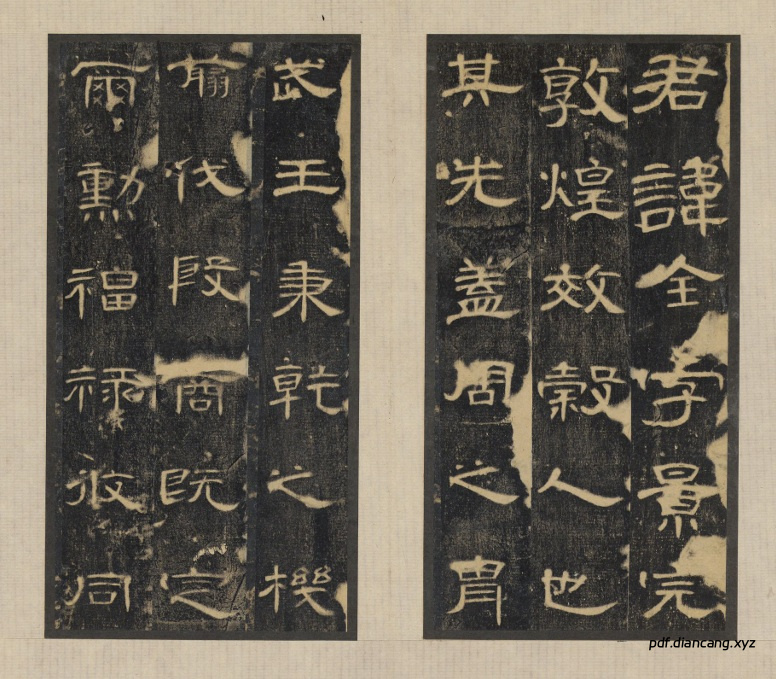 君諱全字景完
敦煌效穀人也
其先蓋周之胄
武王秉乾之機
翦伐殷商既定
爾勳福祿攸同
pdf.diancang.xyz